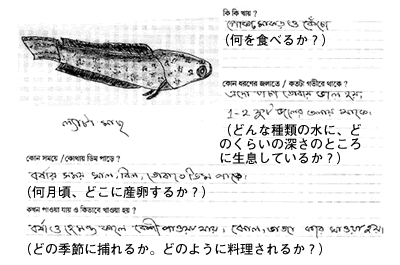 কি কি খায় ?
পোকা, মাকড় ও কেঁচো
(何を食べるか？)
কোন ধরণের জলাতে / কতটা গভীরে থাকে ?
1-2 ফুট জলের তলায় থাকে।
(どんな種類の水に、ど
のくらいの深さのところ
に生息しているか？)
ল্যাটা মাছ
কোন সময়ে / কোথায় ডিম পাড়ে ?
বর্ষার সময় খাল, বিল, ডোবাতে ডিম পাড়ে।
(何月頃、どこに産卵するか？)
কখন পাওয়া যায় ও কিভাবে খাওয়া হয় ?
বর্ষা ও হেমন্ত কালে বেশী পাওয়া যায়, ঝোল, ভাজা করে খাওয়া হয়।
(どの季節に捕れるか。どのように料理されるか？)